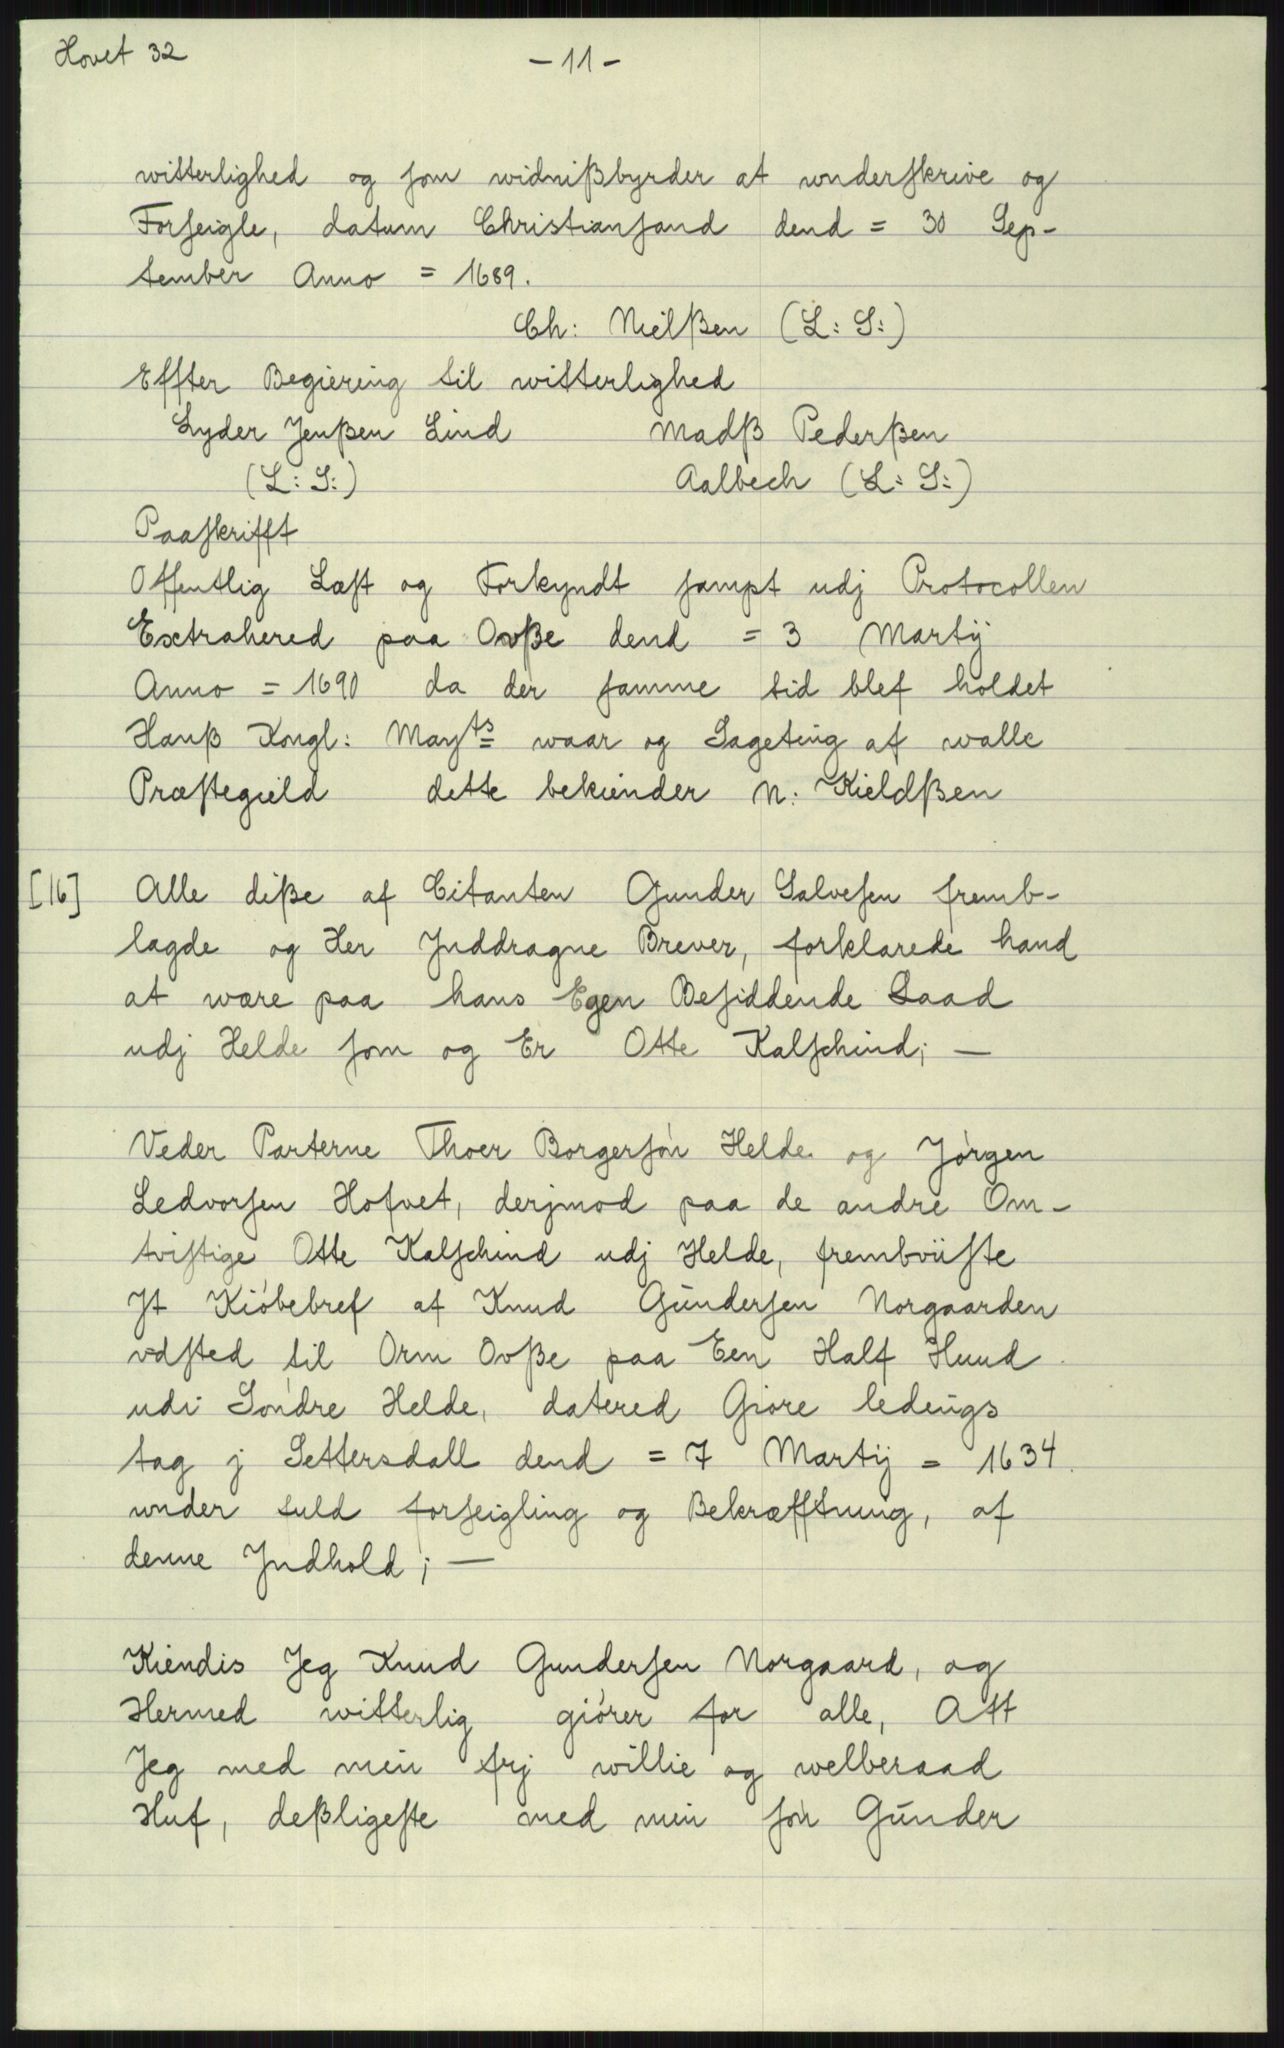 Hovet 32
- 11 -
witterlighed og som widnißbyrder at wnderskrive og
Forseigle, datum Christiansand dend = 30 Sep-
tember Anno = 1689.
Ch: Nielßen (L: S:)
Effter Begiering til witterlighed
Lyder Jenßen Lind Madß Pederßen
(L: S:) Aalbech (L: S:)
Paaskrifft
Offentlig Læst og Forkyndt sampt udj Protocollen
Extrahered paa Ovße dend = 3 Martÿ
Anno = 1690 da der samme tid blef holdet
Hanß Kongl: Mayts waar og Sageting af walle
Præstegield dette bekiender N: Kieldßen
[16] Alle diße af Citanten Gunder Salvesen fremb-
lagde og Her Jnddragne Brever, forklarede hand
at være paa hans Egen Besiddende Laad
udj Helde som og Er Otte Kalschind; —
Veder Parterne Thoer Borgersón Helde og Jórgen
Ledvorsen Hofvet, derjmod paa de andre Om-
tvistige Otte Kalschind udj Helde, frembviiste
Jt Kióbebref af Knud Gúndersen Norgaarden
vdsted til Orm Ovße paa Een Half Huud
udi Sóndre Helde, datered Giore ledings
tag j Settersdall dend = 7 Martij = 1634.
under fuld forseigling og Bekræfftning, af
denne Jndhold; —
Kiendis Jeg Knud Gundersen Norgaard, og
Hermed witterlig giórer for alle, Att
Jeg med min frj willie og welberaad
Huf, deßligeste med min són Gúnder